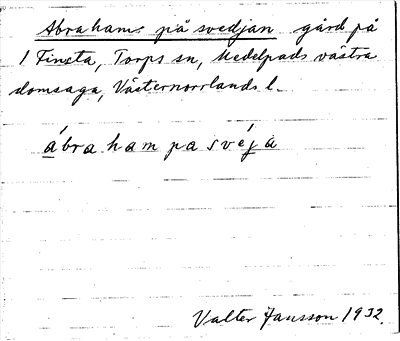 Abrahams på svedjan gård på
1 Finsta, Torps sn, Medelpads västra
domsaga, Västernorrlands l.
ábraham pa svéja
Valter Jansson 1932.